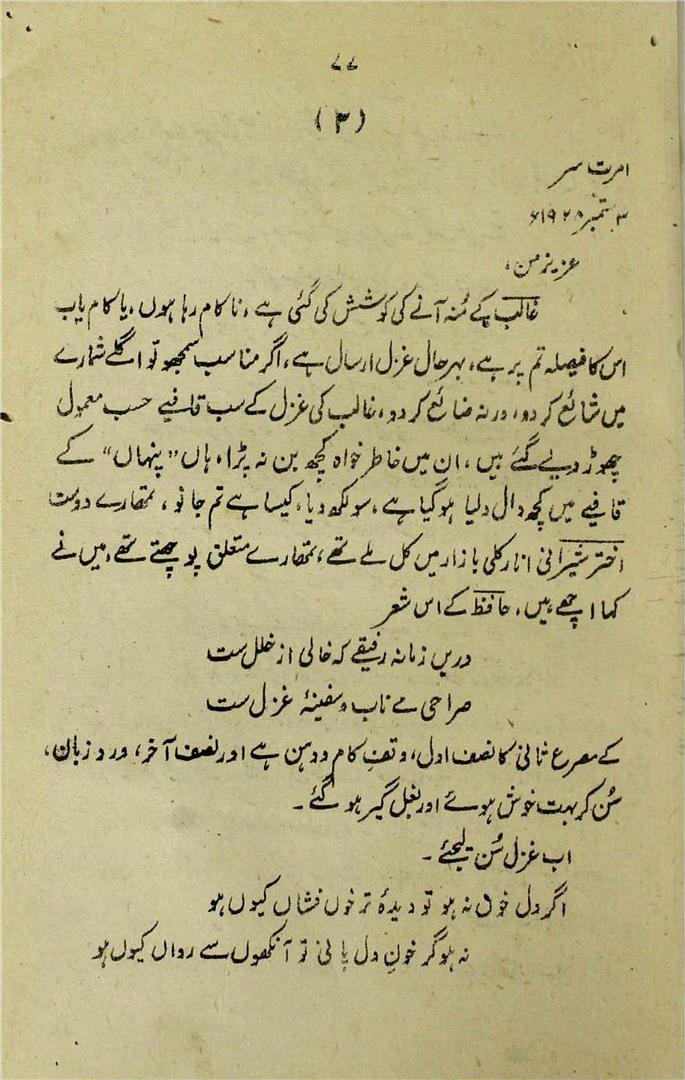 ۷۷
(۳)
امرت سر
۳ ستمبر ۱۹۲۸ء
عزیز من،
غالبؔ کے مُنہ آنے کی کوشش کی گئی ہے، ناکام رہا ہوں، یا کام یاب
اس کا فیصلہ تم پر ہے، بہر حال غزل ارسال ہے، اگر مناسب سمجھو تو اگلے شمارے
میں شائع کر دو، ورنہ ضائع کر دو، غالب کی غزل کے سب قافیے حسب معمول
چھوڑ دیے گئے ہیں، ان میں خاطر خواہ کچھ بن نہ پڑا، ہاں ”پنہاں“ کے
قافیے میں کچھ دال دلیا ہو گیا ہے، سو لکھ دیا، کیسا ہے تم جانو، تمھارے دوست
اختر شیرانی انار کلی بازار میں کل ملے تھے، تمھارے متعلق پوچھتے تھے، میں نے
کہا اچھے ہیں، حافظؔ کے اس شعر
دریں زمانہ رفیقے کہ خالی از خلل ست
صراحی مے ناب و سفینۂ غزل ست
کے مصرع ثانی کا نصف اول، وقفِ کام و دہن ہے اور نصف آخر، ورد زبان،
سُن کر بہت خوش ہوئے اور بغل گیر ہو گئے۔
اب غزل سُن لیجئے۔
اگر دل خوں نہ ہو تو دیدۂ تر خوں فشاں کیوں ہو
نہ ہو گر خونِ دل پانی تو آنکھوں سے رواں کیوں ہو